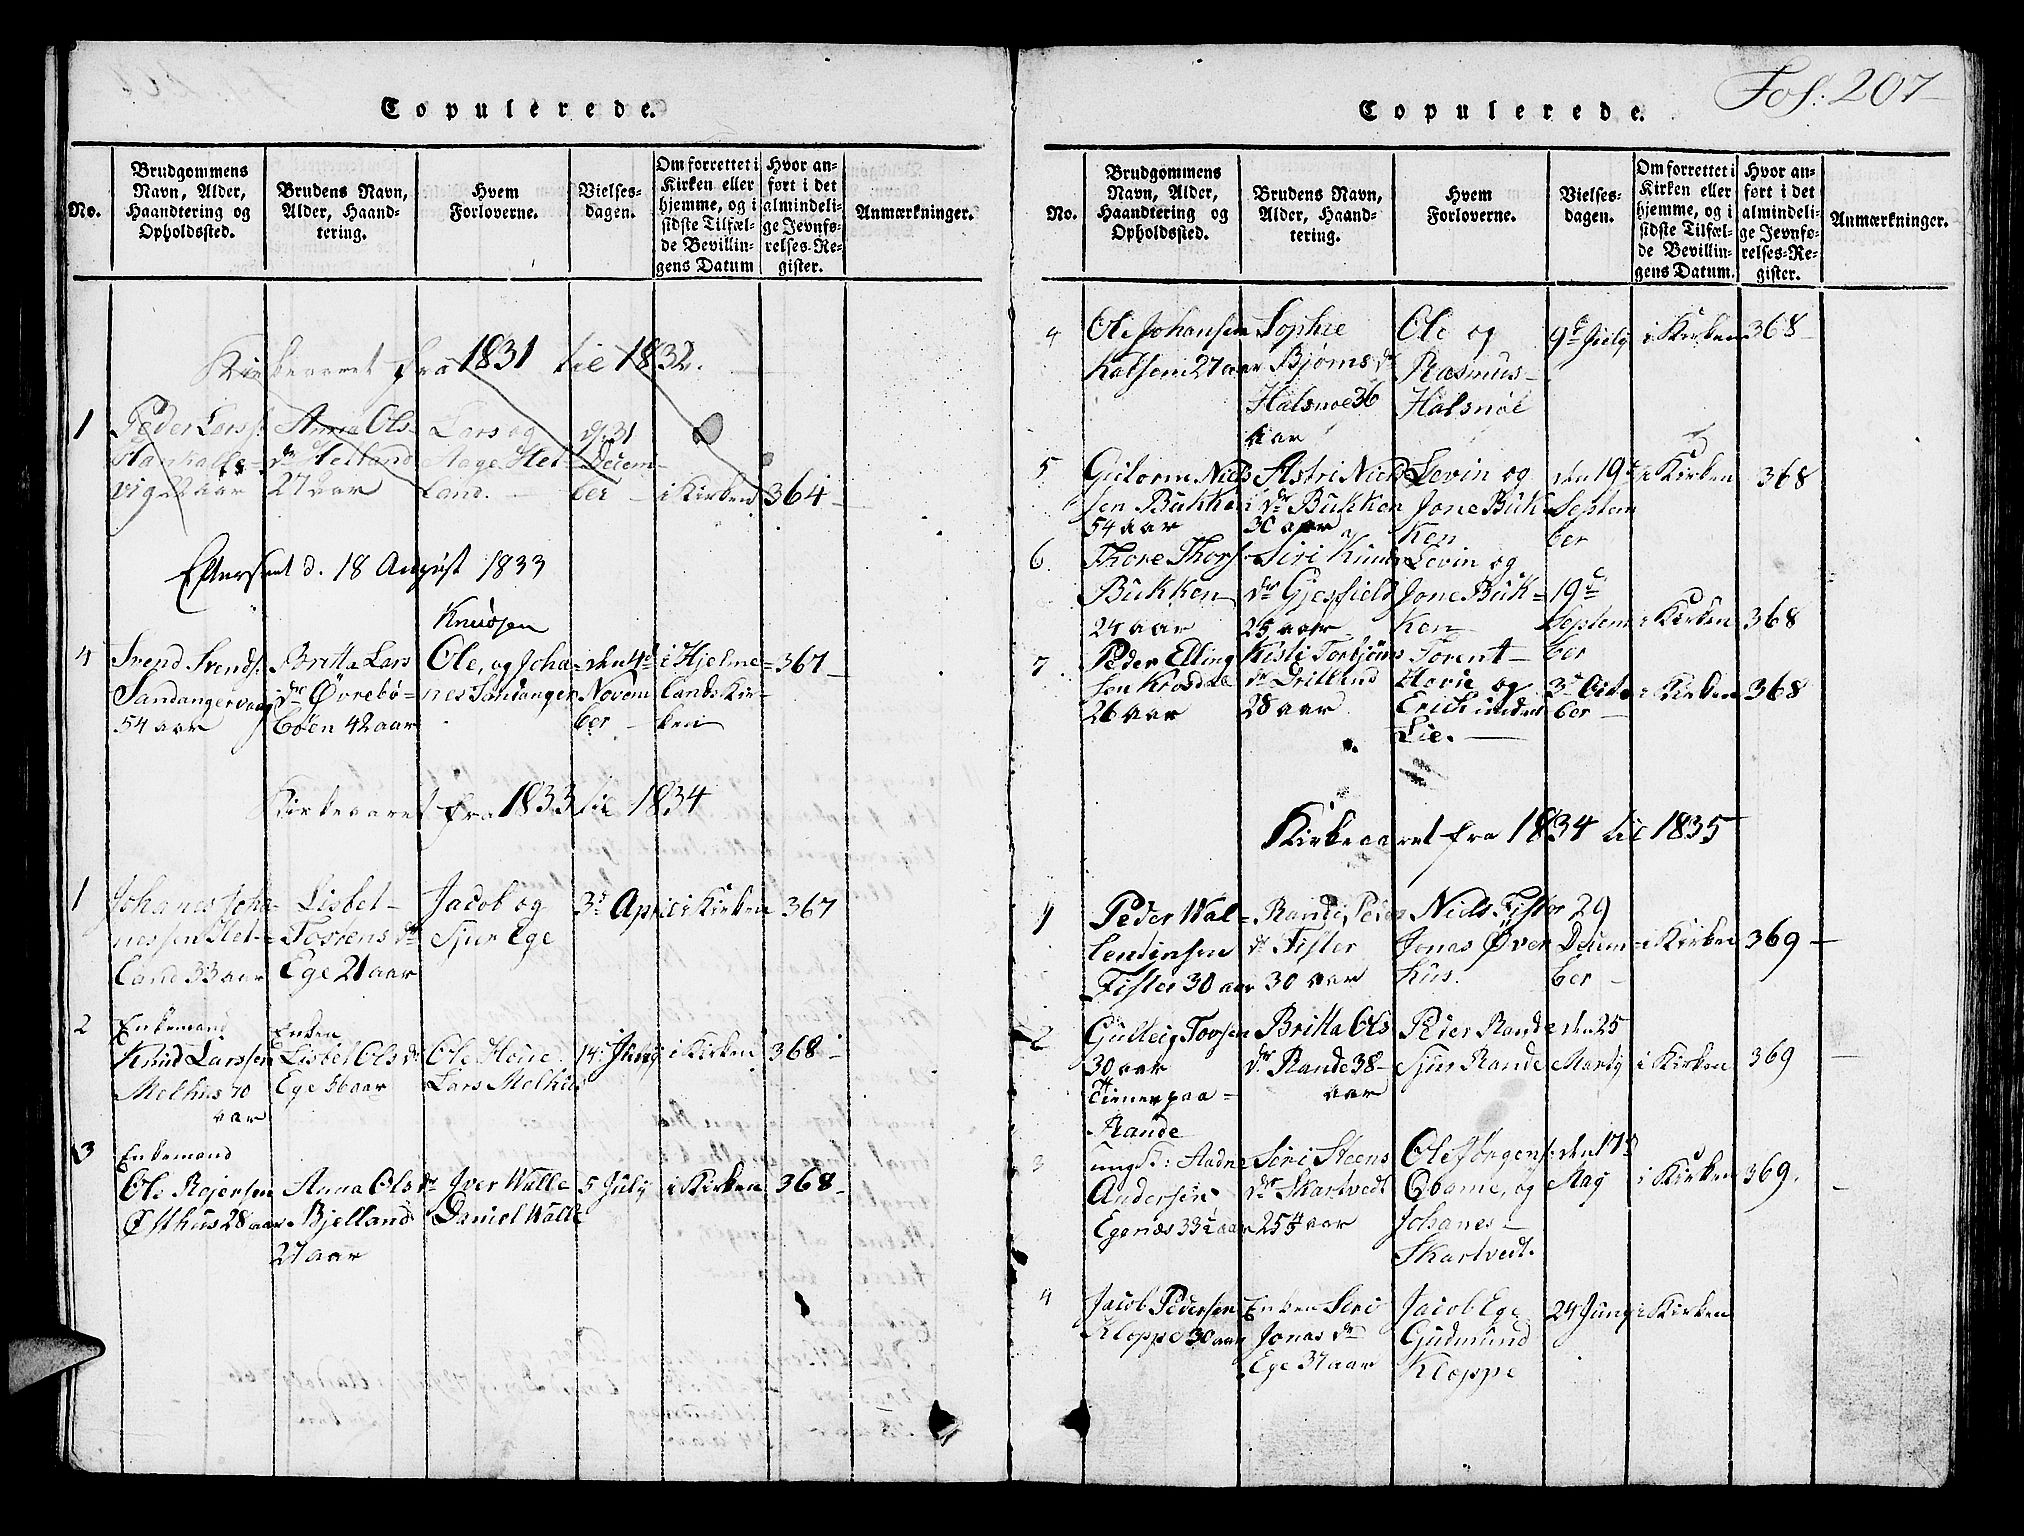 Copulerede.
No.
Brudgommens Navn, Alder, Haandtering og Opholdssted.
Brudens Navn, Alder, Haandtering.
Hvem Forloverne.
Vielsesdagen.
Om forrettet i Kirken eller hjemme, og i sidste Tilfælde Bevillingens Datum
Hvor anført i det almindelige Jevnførelses-Register.
Anmærkninger.
Kirkeaaret fra 1831 til 1832.
1
Peder Larss:
vig 22 aar
Anna Ols-
dr Helland
27 aar
Lars og
Aage Hel-
land.
d. 31
Decem-
ber
i Kirken
364
Efterseet d. 18 August 1833
4
Svend Svends:
Sandangervaag
54 aar
Britta Lars
dr Øvrebø-
bøen 42 aar
Knudsen
Ole, og Joha-
nes Sandanger
den 4de
Novem
ber
i Hjelme-
lands Kir-
ken
367
Kirkeaaret fra 1833 til 1834
1
Johanes Joha-
nessen Het-
land 33 aar
Lisbet
Torens dr
Ege 21 aar
Jacob og
Sjur Ege
3d April
i Kirken
367
2
Enkemand
Knud Larssen
Melhus 70
aar
Enken
Lisbet Ols dr
Ege 56 aar
Ole Høie
Lars Melhus
14
i Kirken
368
3
Enkemand
Ole Rejersen
Østhus 28 aar
Anna Ols dr
Bjelland
27 aar
Iver Walle
Daniel Walle
5 July
i Kirken
368
Fol: 207
Copulerede.
No.
Brudgommens Navn, Alder, Haandtering og Opholdssted.
Brudens Navn, Alder, Haandtering.
Hvem Forloverne.
Vielsesdagen.
Om forrettet i Kirken eller hjemme, og i sidste Tilfælde Bevillingens Datum.
Hvor anført i det almindelige Jevnførelses-Register.
Anmærkninger.
4
Ole Johansen
27 aar
Sophie
Bjørns dr
Halsnøe 36
aar
Ole og
Rasmus
Halsnøe
9d July
i Kirken
368
5
Gutorm Niels
sen Bukken
54 aar
Astri Niels
dr Bukken
30 aar
Levin og
Jone Buk
ken
den 19de
Septem
ber
i Kirken
368
6
Thore Thors:
Bukken
24 aar
Siri Knuds
dr Gjesfield
25 aar
Levin og
Jone Buk-
ken
19de
Septem
ber
i Kirken
368
7
Peder Elling
sen Krosdal
26 aar
Kisti Torbjørns
dr Dritlund
28 aar
Torent
Høvie og
Erich
Lie.
3d Octo
ber
i Kirken
368
Kirkeaaret fra 1834 til 1835
1
Peder Wal-
lentinsen
Fister 30 aar
Randi Peders
dr Fister
30 aar
Niels Fister
Jonas Øver
hus.
29
Decem-
ber
i Kirken
369
2
Gulleig Torsen
30 aar
Tiener paa
Rande
Britta Ols
dr Rande 38
aar
Peder Rande
Sjur Rande
den 25
Martz
i Kirken
369
3
ungk: Aadne
Andersen
Egenæs 33½ aar
Siri Steens
dr Skartvedt
25¼ aar
Ole Jørgens:
Qvame, og
Johanes
Skartvedt.
den 17d
May
i Kirken
369.
4
Jacob Pedersen
Kloppe 30 aar
Enken Siri
Jonas dr
Ege 37 aar
Jacob Ege
Gudmund
Kloppe
24 Juny
i Kirken